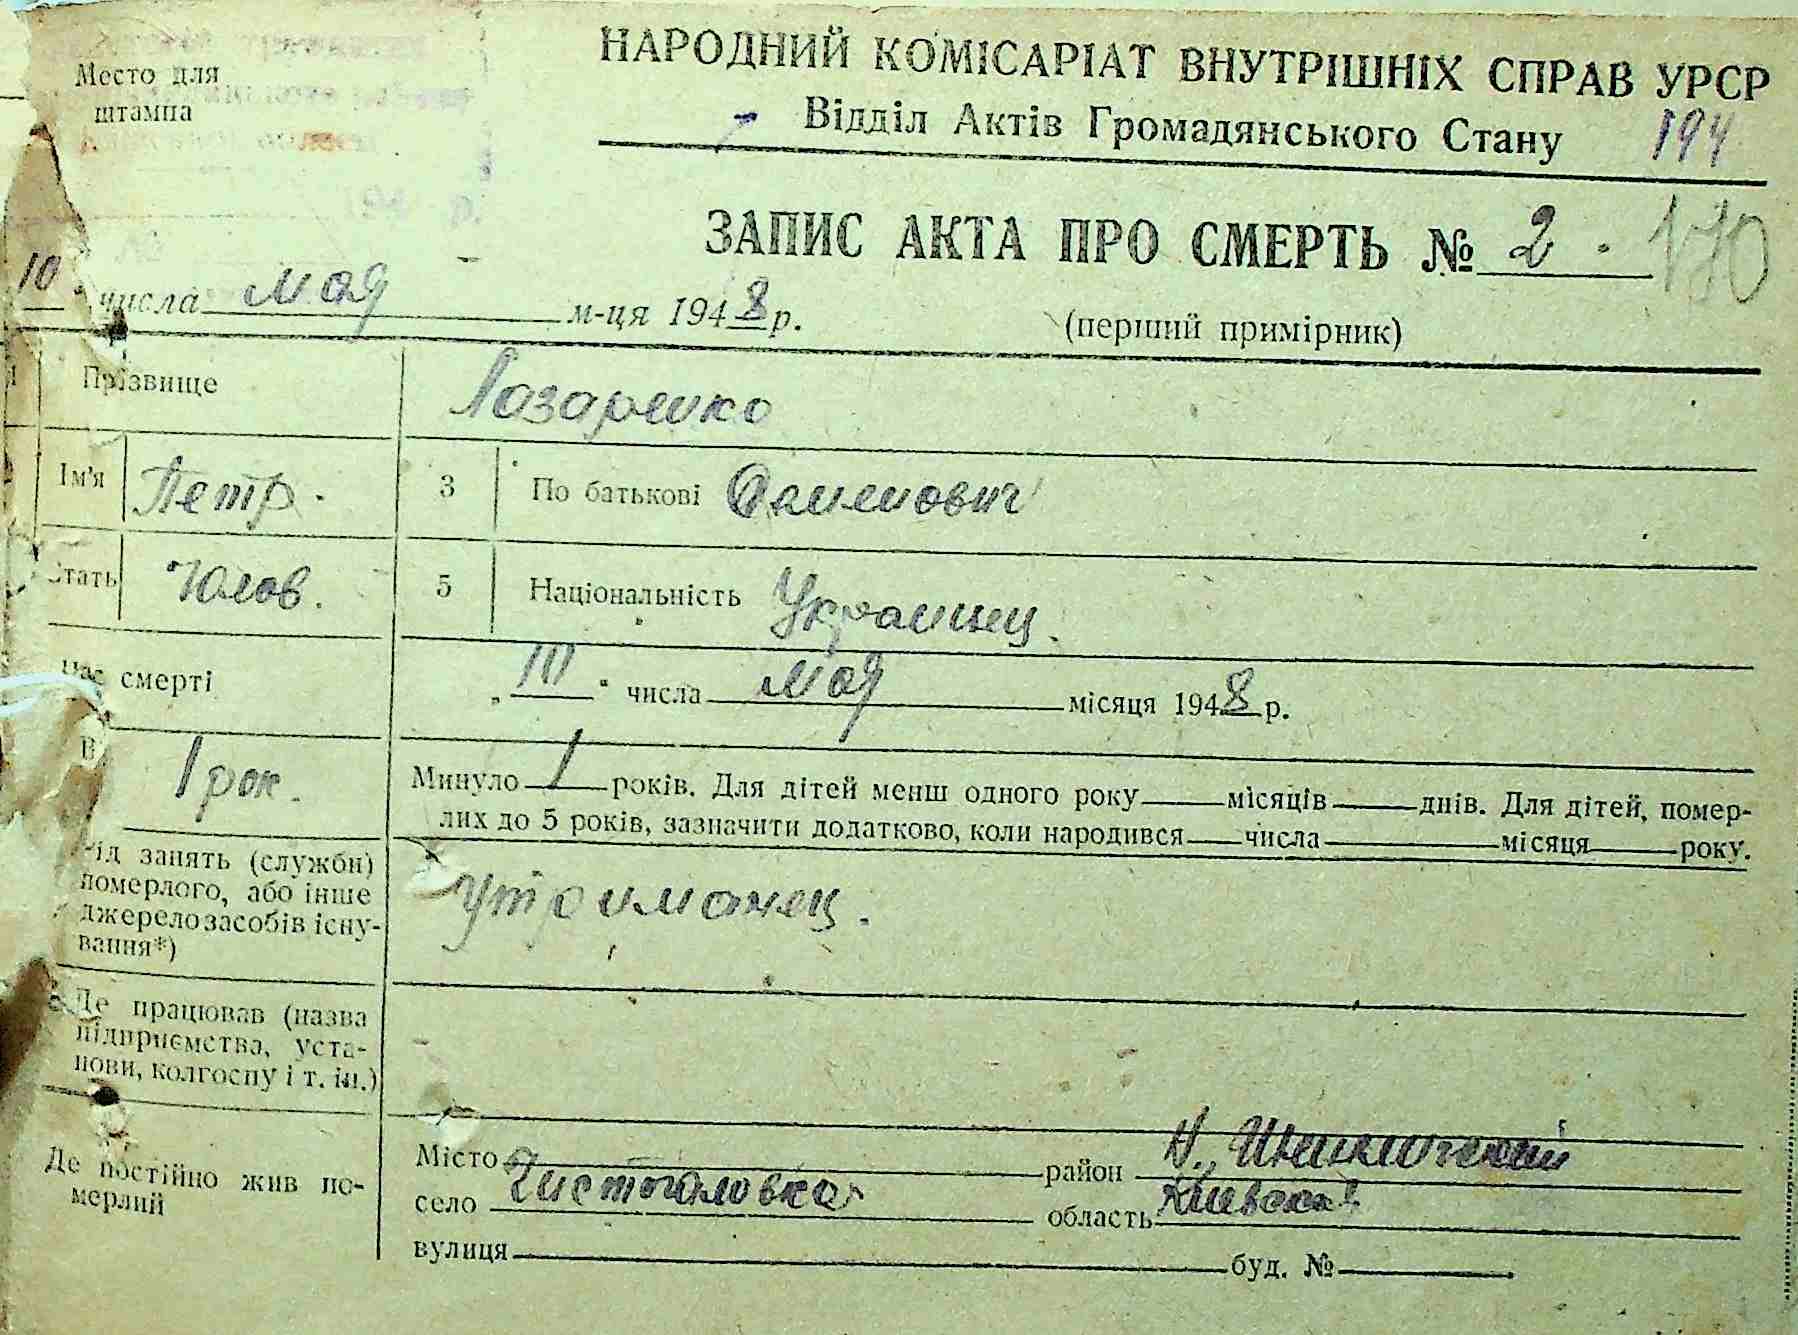 Место для
штампа
НАРОДНИЙ КОМІСАРІАТ ВНУТРІШНІХ СПРАВ УРСР
Відділ Актів Громадянського Стану 194
ЗАПИС АКТА ПРО СМЕРТЬ № 2 170
10 числа мая м-ця 1948 р.
(перший примірник)
Прізвище Лазаренко
Ім'я Петр. 3 По батькові
Стать Чолов. 5 Національність Украинец.
Час смерті „10" числа мая місяця 1948 р.
1 рок. Минуло 1 років. Для дітей менш одного року місяців днів. Для дітей, помер-
лих до 5 років, зазначити додатково, коли народився числа місяця року.
Рід занять (служби)
померлого, або інше
джерело засобів існу-
вання*)
утриманец.
Де працював (назва
підприємства, уста-
нови, колгоспу і т. ін.)
Де постійно жив по-
мерлий
Місто район Н.
село Чистоголовка область Киевская
вулиця буд. №